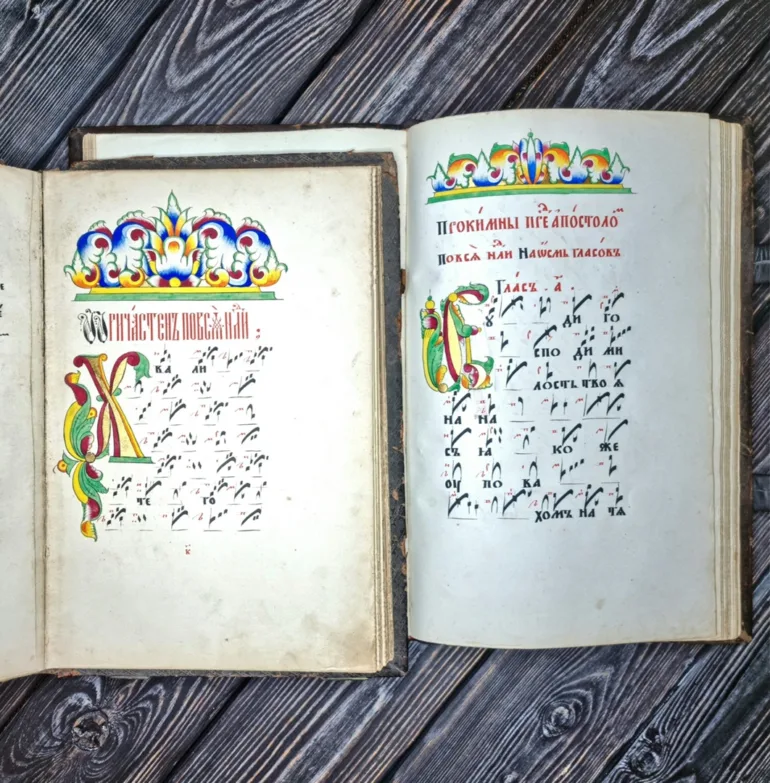 Причастенъ повсѧ̀ нлⷣи :
Х ва ли
те го
к҃
Прокі́мны прⷤе а҆по́столоⷨ
Повсѧ̀ нⷣли Наѻ҆смь гласо́въ
Гла́съ . а҃ .
Б у ди го
спо ди ми
лость тво ѧ
на на
съ ꙗ ко же
оу по ва
хомъ на тѧ